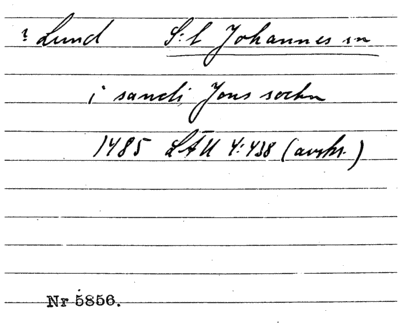 ? Lund S:t Johannes sn
i sancti Jons sochn
1485 LÄU 4:438 (avskr.)
Nr 5856.